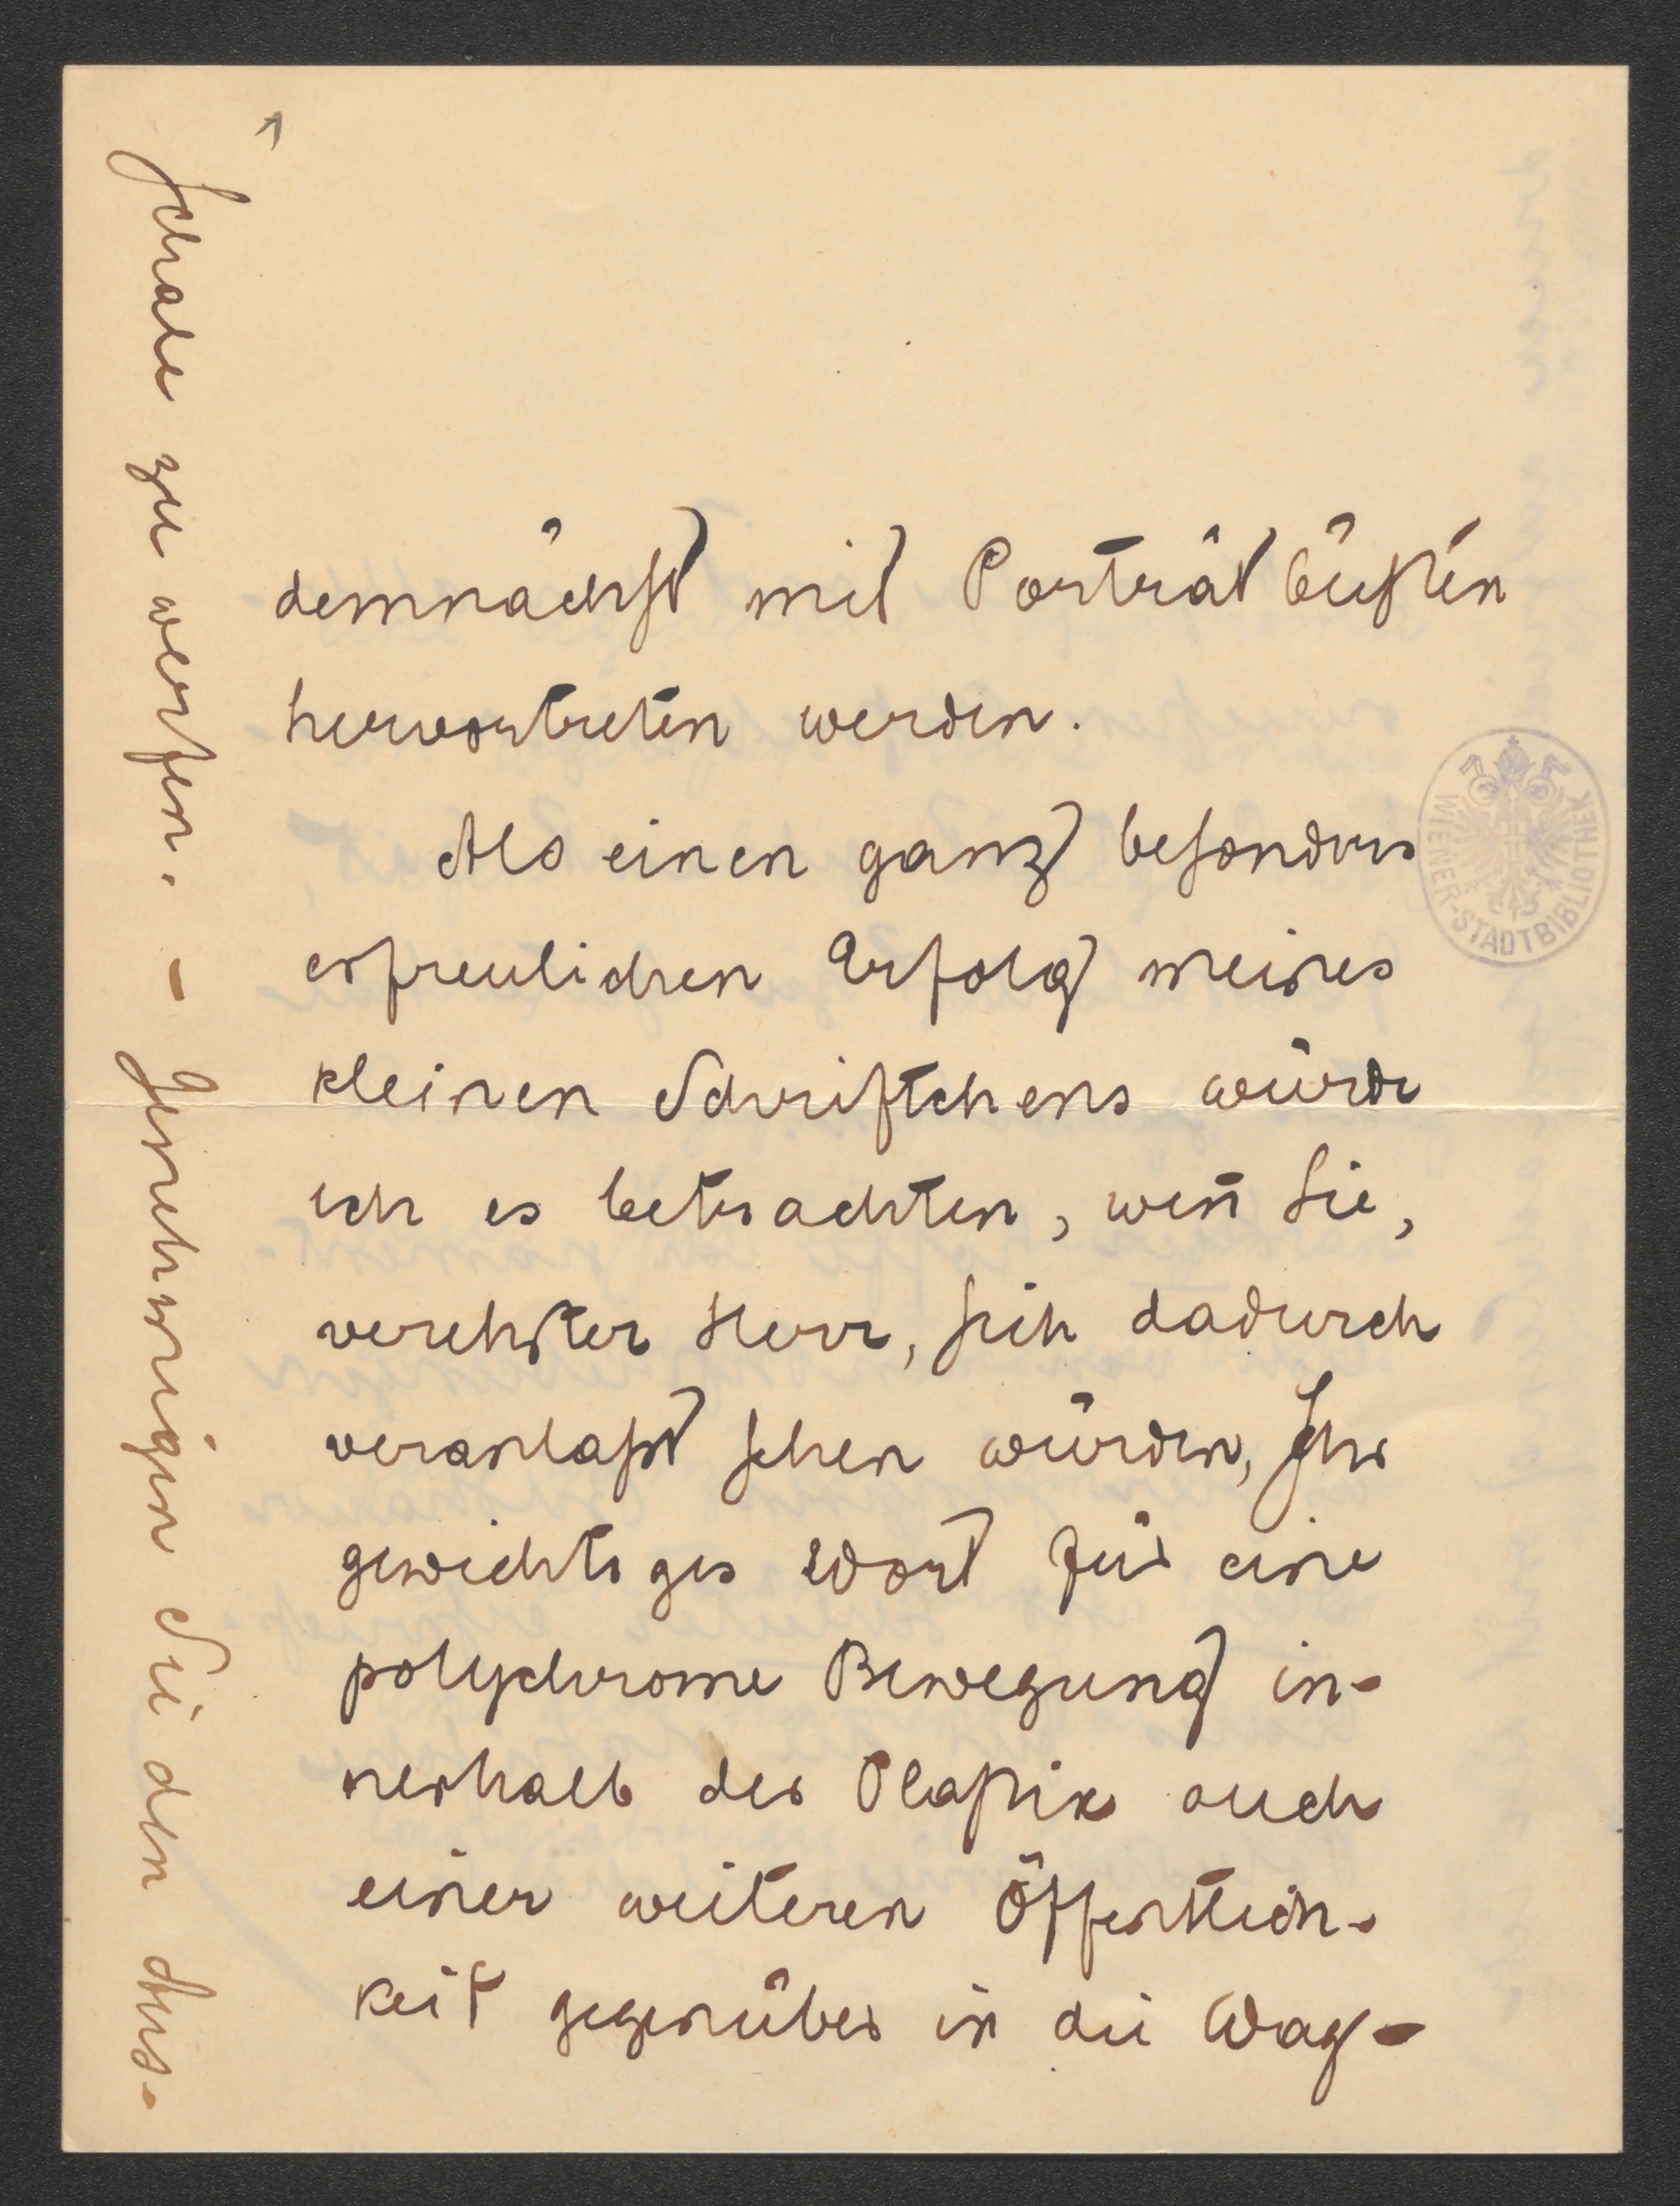 demnächst mit Porträtbüsten
hervortreten werden.
Als einen ganz besonders
erfreulichen Erfolg meines
kleinen Schriftchens würde
ich es betrachten, wen̄ Sie,
verehrter Herr, sich dadurch
veranlaßt sehen würden, Ihr
gewichtiges Wort für eine
polychrome Bewegung in-
nerhalb der Plastik auch
einer weiteren Öffentlich-
keit gegenüber in die Wag-
schale zu werfen. – Genehmigen Sie den Aus-
WIENER-STADTBIBLIOTHEK